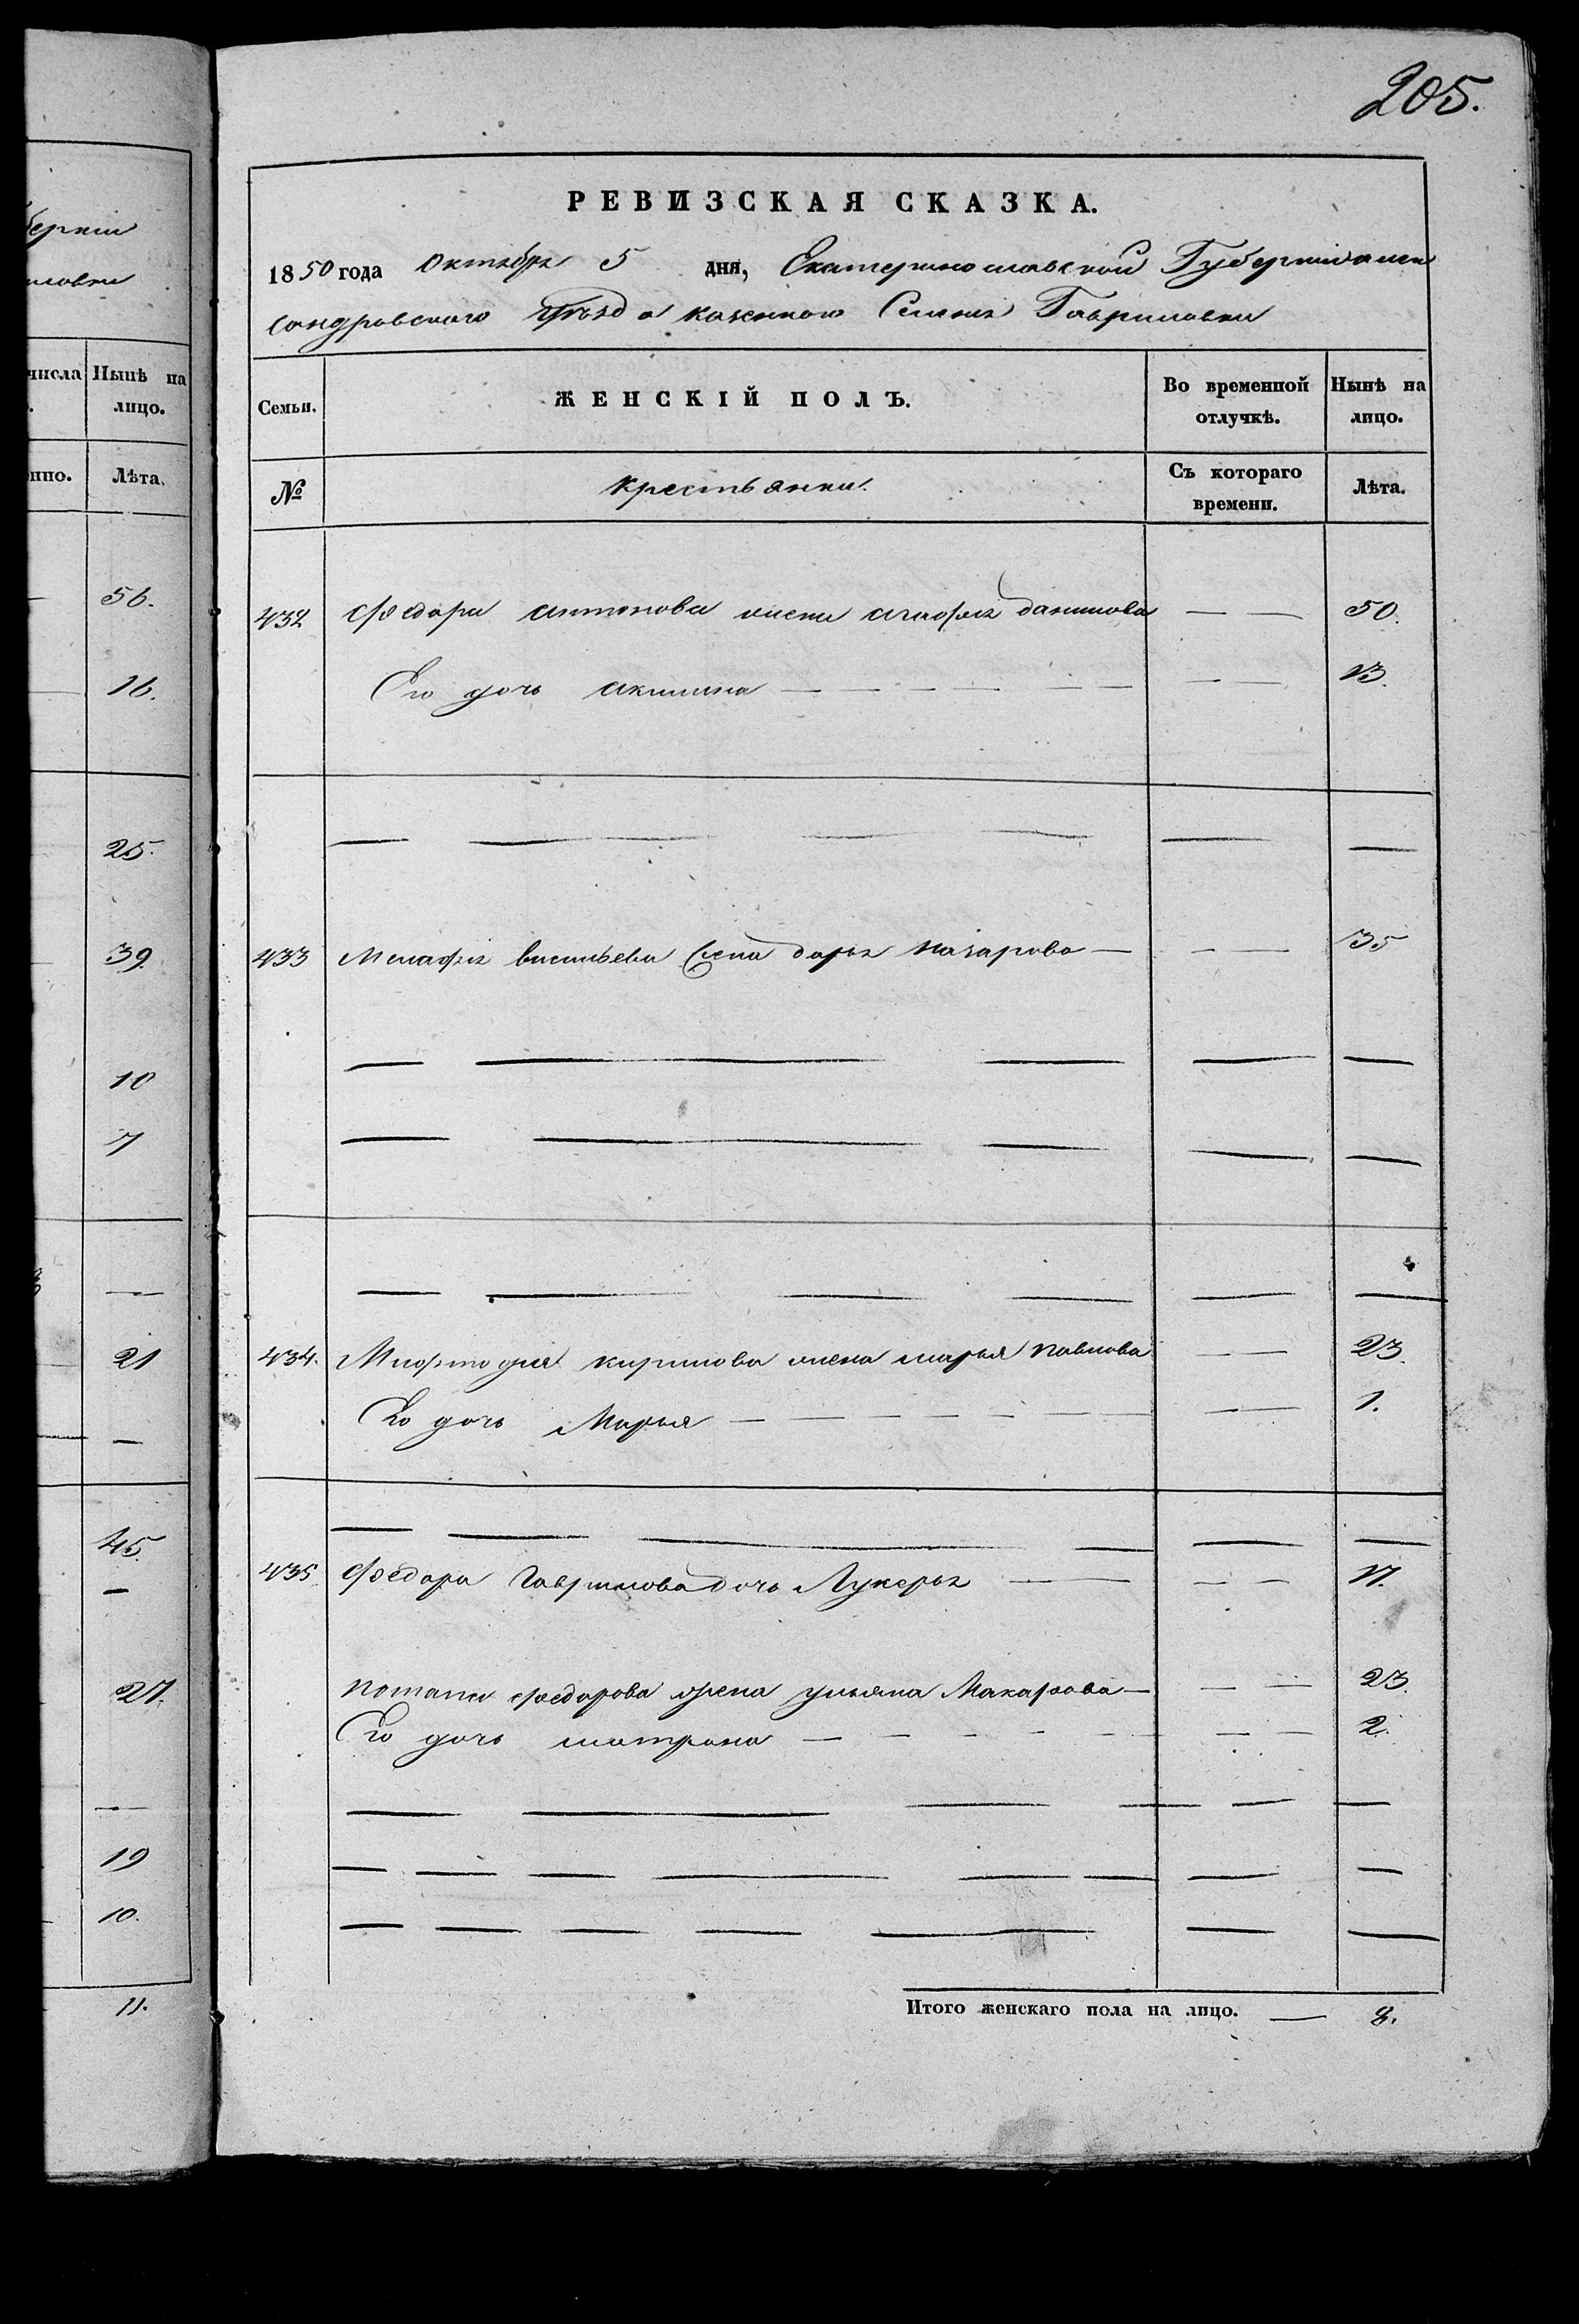 205.
берніи
иловки
РЕВИЗСКАЯ СКАЗКА.
1850 года Октября 5 дня, Екатеринославской Губерніи алек
сандровского уѣзда казенного Селенія Гавриловки
числа Нынѣ на лицо.
нно. Лѣта.
56.
16.
25.
39.
10
7
—
21
—
45.
—
27.
—
19
10.
11.
Семьи. ЖЕНСКІЙ ПОЛЪ. Во временной отлучкѣ. Нынѣ на лицо.
№ Крестьянки. Съ котораго времени. Лѣта.
432 федора антонова жена агафія данилова — — 50.
Его дочь акилина — — — — — — — — 13.
— — — — — — —
433 василева жена дарья назарова — — — 35
— — — — —
— — — — —
— — — — — —
434. кирилова жена марья павлова — — 23.
Его дочь Марья — — — — — — — — 1.
— — — — — —
435 федора Гаврилова дочь Лукерья — — — — 17.
потапа федорова жена ульяна Макарова — — — 23.
Его дочь матрона — — — — — — — 2.
— — — — — — —
— — — — — — — —
— — — — — — —
Итого женскаго пола на лицо. — 8.